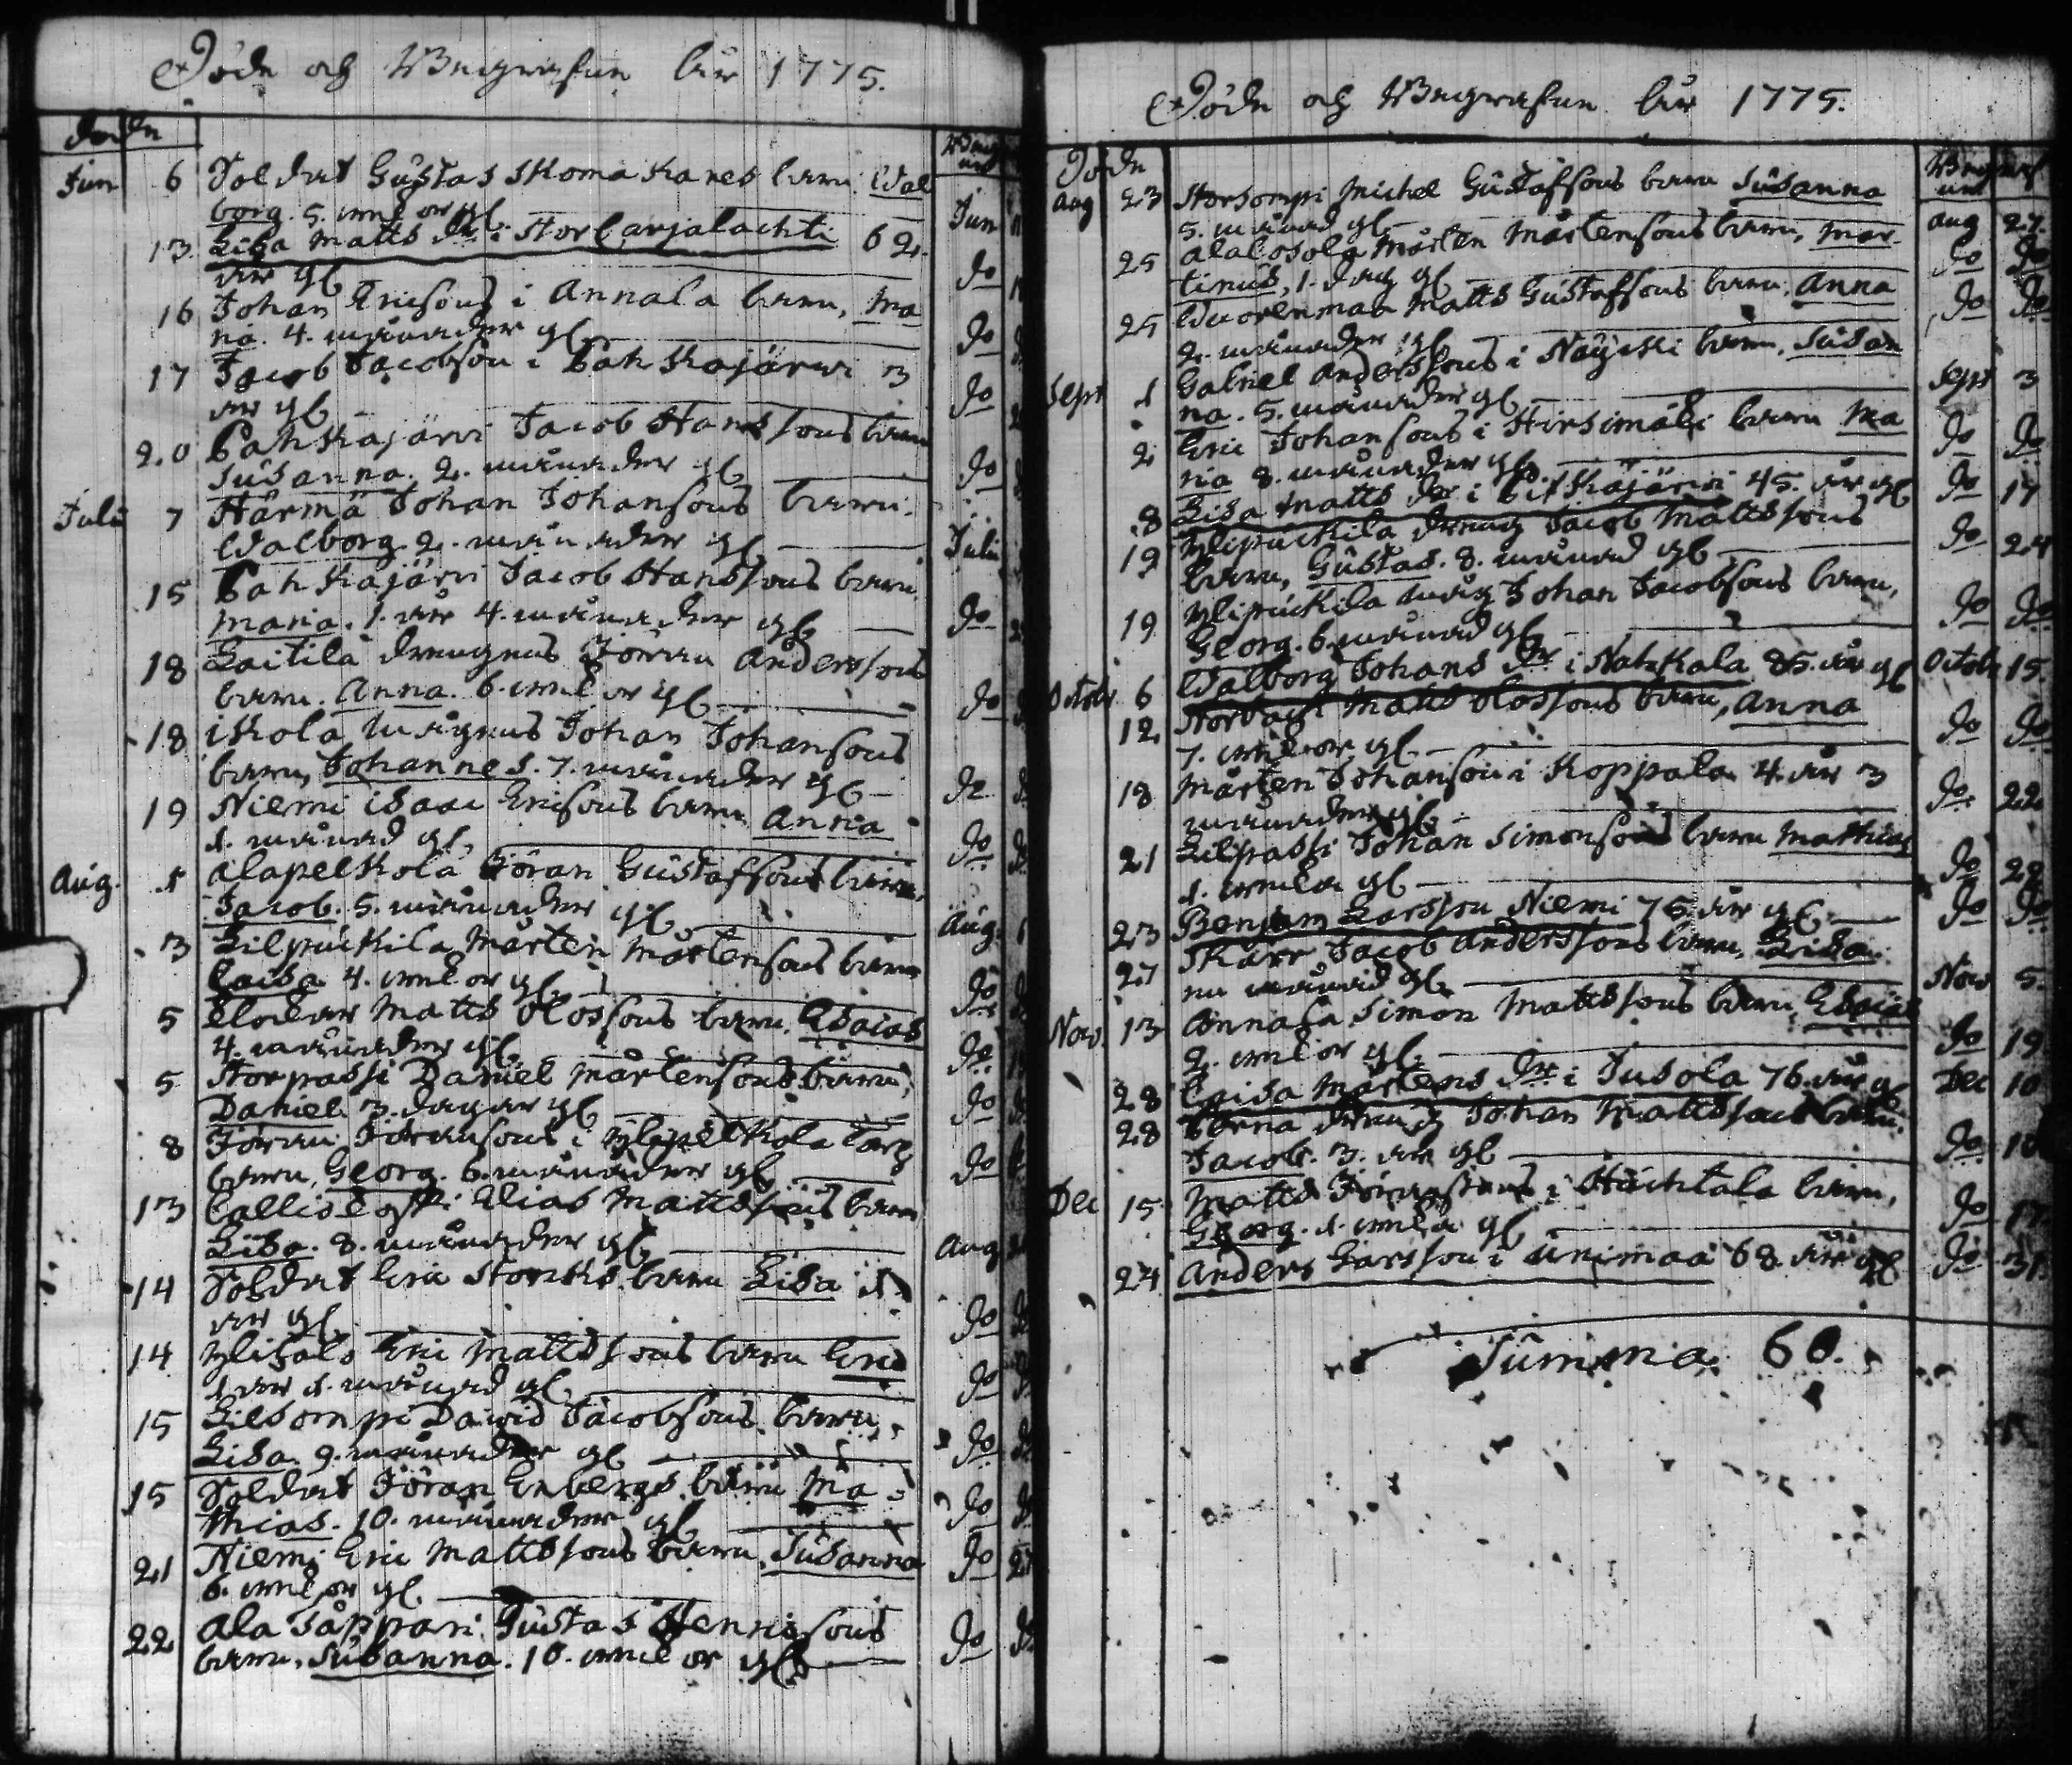 Döde och Begrafne åhr 1775.
Döde
Jun 6 Soldat Gustaf Skomakares barn Wal
borg. 5. weckor gl. Jun
13 Lisa Matts dr i Storcarjalachti 62.
åhr gl Do
16 Johan Ericsons i Annala barn, Ma
ria. 4. månader gl Do
17 Jacob Jacobson i Cahskajärvi 3
åhr gl Do
20 Cahskajärvi Jacob Hanssons barn
Susanna. 2. månader gl Do
Julii 7 Härmä Johan Johansons barn.
Walborg. 2. månader gl Julii
15 Cahskajärvi Jacob Hanssons barn
Maria. 1. åhr 4. månader gl Do
18 Laitila drengens Jöran Anderssons
barn. Anna. 6. weckor gl Do
18 iskola mågens Johan Johansons
barn, Johannes. 7. månader gl Do
19 Niemi isaac Ericsons barn Anna
1. månad gl. Do
Aug. 1 alapelkola Jöran Gustafsons barn,
Jacob. 5. månader gl. Aug.
3 Lilpuckila Mårten Mårtensons barn
Caisa 4. weckor gl Do
5 Klockar Matts Olofsons barn. Esaias
4. månader gl. Do
5 Storpassi Daniel Mårtensons barn,
Daniel 3. dagar gl Do
8 Jöran Jöransons i Ylipelkola
barn, Georg. 6. månader gl Do
13 Elias Mattssons barn
Lisa. 8. månader gl. Aug
14 Soldat Eric Storcks barn Lisa 1
åhr gl. Do
14 Ylisalo Eric Mattssons barn Eric
1 åhr 1. månad gl. Do
15 Lilsompi David Jacobsons barn,
Lisa. 9. månader gl Do
15 Soldat Jöran Enbergs barn Ma
thias. 10. månader gl Do
21 Niemi Eric Mattssons barn, Susanna Do 27
6. weckor gl.
22 Ala Täppari Gustaf Henricsons Do
barn. Susanna. 10. weckor gl
Döde och Begrafne åhr 1775.
Döde
aug 23 Storsompi Michel Gustafsons barn Susanna
5. månad gl aug 27.
25 alalosola Mårten Mårtensons barn, Mar
tinus, 1. dag gl Do Do
25 Wuorenmaa Matts Gustafsons barn, Anna
2. månader gl Do Do
Sept 1 Gabriel Anderssons i Näyski barn. Susan
na. 5. månader gl Sept 3
2 Eric Johansons i Hirsimäki barn Ma
ria 8. månader gl. Do Do
8 Lisa Matts dr i Pitkäjärvi 45. åhr gl Do 17
19 Ylipuckila dreng Jacob Mattssons
barn, Gustaf. 8. månad gl Do 24
19 Ylipuckila måg Johan Jacobsons barn,
Georg. 6. månad gl Do Do
Octobr 6 Walborg Johans dr i Natzkala 85. åhr gl Octobr 15.
12. Matts Olofsons barn, Anna
7. weckor gl Do Do
18 Mårten Johanson i Koppala 4. åhr 3
månader gl. Do. 22.
21 Lilpassi Johan Simonsons barn Mathias
1. wecka gl Do 22
23 Benjam Larsson Niemi 75. åhr gl. Do Do
27 Skarr Jacob Anderssons barn, Lisa.
månad gl. Nov 5.
Nov. 13 Annala Simon Mattssons barn, Esaias
2. weckor gl. Do 19
28 Caisa Mårtens dr i Jusola 76. åhr gl Dec 10
28 Perna dreng Johan Mattssons barn.
Jacob. 3. åhr gl Do. 10
Dec 15. Matts Jöransons i Huchtala barn,
Georg. 1. wecka gl Do 17.
24 Anders Larsson i Unimaa 68. åhr gl Do 31.
Summa. 60.